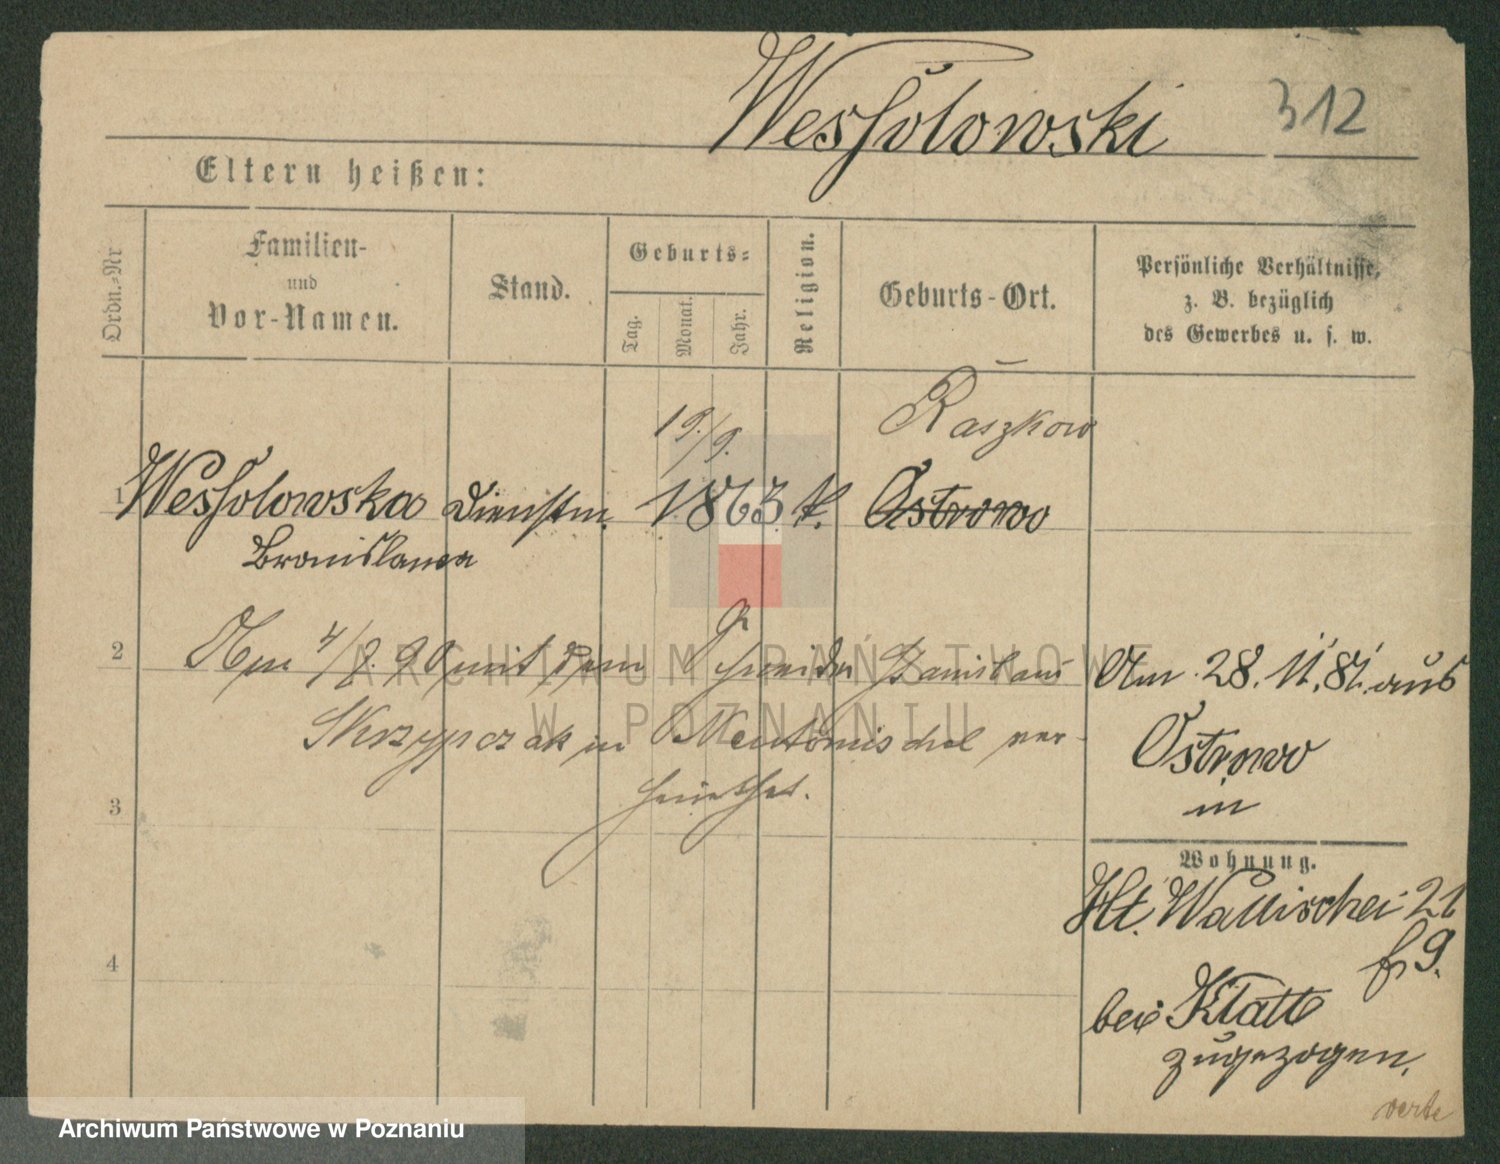 Wessolowski 312
Eltern heißen:
Ordn.-Nr
Familien-
und
Vor-Namen.
Stand.
Geburts-
Tag.
Monat.
Jahr.
Religion.
Geburts-Ort.
Persönliche Verhältnisse,
z. B. bezüglich
des Gewerbes u. s. w.
19./9. Raszkow
1 Wessolowska Dienstm. 1863 k. Ostrowo
Bronislawa
2 Am 4/8. 90 mit dem Schneider Stanislaus
Skrzypczak in Neutomischel ver-
heirathet.
3
4
Am 28. 11. 81. aus
Ostrowo
in
Wohnung.
Wallischei 21
9.
bei Klatt
zugezogen.
verte
ARCHIWUM PAŃSTWOWE
W POZNANIU
Archiwum Państwowe w Poznaniu